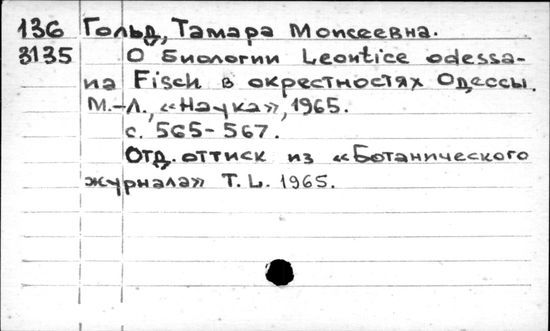 136 Гольд, Тамара Моисеевна.
3135 О биологии Leontice odessa-
na Fisch в окрестностях Одессы.
М.-Л., «Наука», 1965.
с. 565-567.
Отд. оттиск из «Ботанического
журнала» Т. L. 1965.